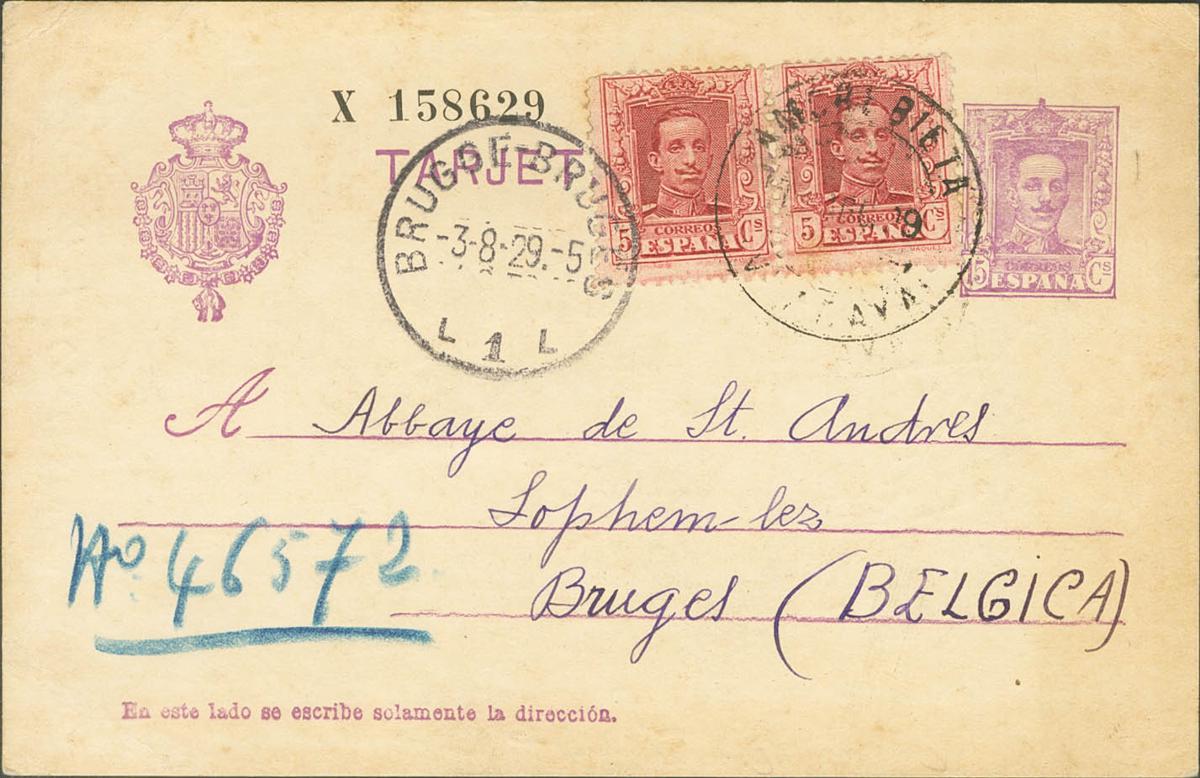 X 158629
TARJET
BRUGGE-BRUGES
-3-8-29.-5
L 1 L
5 CORREOS Cs
ESPAÑA
5 CORREOS Cs
ESPAÑA
AMOREBIETA
15 Cs
ESPAÑA
A Abbaye de St. Andres
Lophem-lez
Bruges (BELGICA)
No. 46572
En este lado se escribe solamente la dirección.